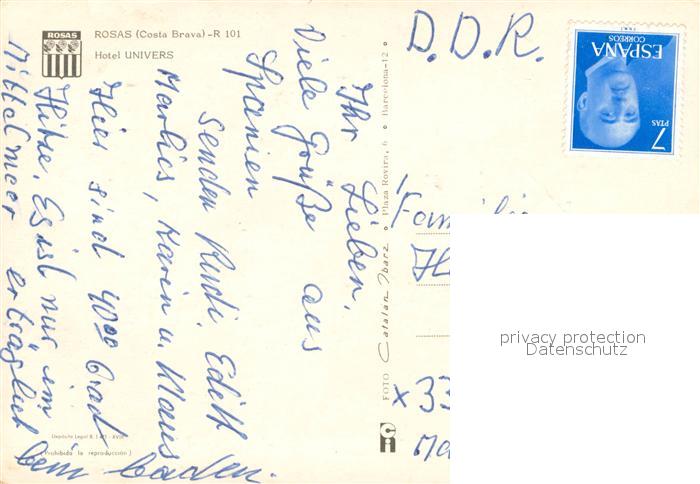 ROSAS
ROSAS (Costa Brava) - R 101
Hotel UNIVERS
Ihr Lieben,
Viele Grüße aus
Spanien
senden Rudi, Edith
Marlies, Karin u. Klaus
Hier sind 40° Grad
Hitze. Es ist nur im
Mittelmeer erträglich
beim baden.
D.D.R.
ESPAÑA
CORREOS
7 PTAS
Familie
x 33
FOTO Catalan Ibarz
Plaza Rovira, 6
Barcelona-12
Depósito Legal B.
(Prohibida la reproducción)
privacy protection
Datenschutz